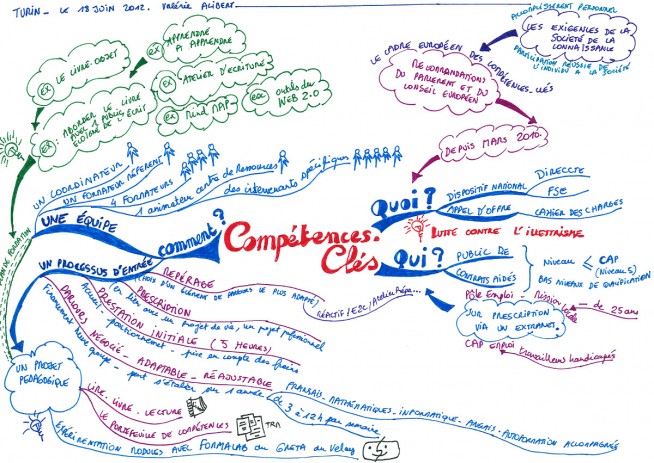 TURIN - LE 18 JUIN 2012. VALÉRIE ALIBERT
APPRENDRE
A APPRENDRE
ex
LE LIVRE-OBJET
ex
ATELIER D'ECRITURE
ex
ex: ABORDER LE LIVRE
AVEC 1 PUBLIC
ELOIGNÉ DE L'ÉCRIT
ex
MIND MAP
ex
outils du
WEB 2.0
ACCOMPLISSEMENT PERSONNEL
LES EXIGENCES DE LA
SOCIÉTÉ DE LA
CONNAISSANCE
PARTICIPATION RÉUSSIE DE
L'INDIVIDU A LA SOCIÉTÉ
LE CADRE EUROPÉEN DES COMPÉTENCES CLÉS
RECOMMANDATIONS
DU PARLEMENT ET DU
CONSEIL EUROPÉEN
DEPUIS MARS 2010.
Quoi?
DISPOSITIF NATIONAL
DIRECCTE
FSE
APPEL D'OFFRE
CAHIER DES CHARGES
LUTTE CONTRE L'ILLETTRISME
Compétences.
Clés
Qui?
PUBLIC DE
NIVEAU ≤ CAP
(NIVEAU 5)
CONTRATS AIDÉS
BAS NIVEAUX DE QUALIFICATION
Pôle Emploi - Mission locale
- de 25 ans
SUR PRESCRIPTION
VIA UN EXTRANET.
CAP EMPLOI
travailleurs handicapés
comment?
UNE ÉQUIPE
UN COORDINATEUR
UN FORMATEUR RÉFÉRENT
4 FORMATEURS
1 animateur centre de Ressources
des intervenants spécifiques
UN PROCESSUS D'ENTRÉE
REPÉRAGE
(CHOIX D'UN ELEMENT DE PARCOURS LE PLUS ADAPTÉ)
RÉACTIF / E2C / Atelier Prépa...
PRESCRIPTION
en lien avec un projet de vie, un projet professionnel
PRESTATION INITIALE (5 HEURES)
Accueil - positionnement - prise en compte des freins
PARCOURS NÉGOCIÉ - ADAPTABLE - RÉAJUSTABLE
peut s'établir sur 1 année
de 3 à 12h par semaine
FRANÇAIS - MATHÉMATIQUES - INFORMATIQUE - ANGLAIS - AUTOFORMATION ACCOMPAGNÉE
PLAN DE FORMATION
UN PROJET
PÉDAGOGIQUE
LIRE. LIVRE. LECTURE
LE PORTEFEUILLE DE COMPÉTENCES
TRM
EXPÉRIMENTATION MODULES AVEC FORMALAB DU GRETA DU VELAY